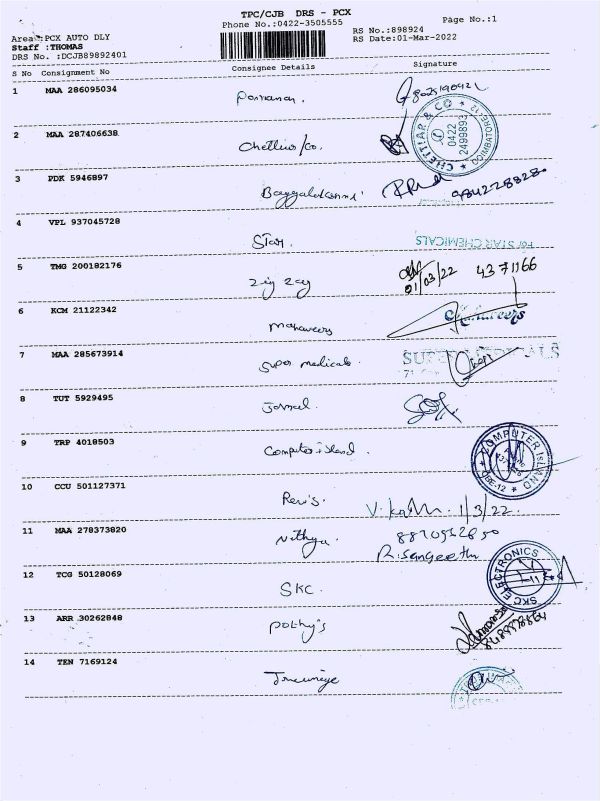 TPC/CJB DRS - PCX
Phone No.:0422-3505555
Page No.:1
Area :PCX AUTO DLY
RS No.:898924
Staff :THOMAS
RS Date:01-Mar-2022
DRS No. :DCJB89892401
S No Consignment No Consignee Details Signature
1 MAA 286095034
2 MAA 287406638
CHETTIAR & CO
0422
2499893
COIMBATORE-12
3 PDK 5946897
4 VPL 937045728 Star.
For STAR CHEMICALS
5 TMG 200182176 Zig Zag
01/03/22 4371166
6 KCM 21122342 Mahaveers
Mahaveers
7 MAA 285673914 Super medicals.
SUPER MEDICALS
8 TUT 5929495
9 TRP 4018503 Computer island.
COMPUTER ISLAND
CBE-12
10 CCU 501127371
1/3/22.
11 MAA 278373820 Nithya.
R.Sangeetha
12 TCG 50128069 SKC.
SKC ELECTRONICS
13 ARR 30262848 Pothy's
14 TEN 7169124